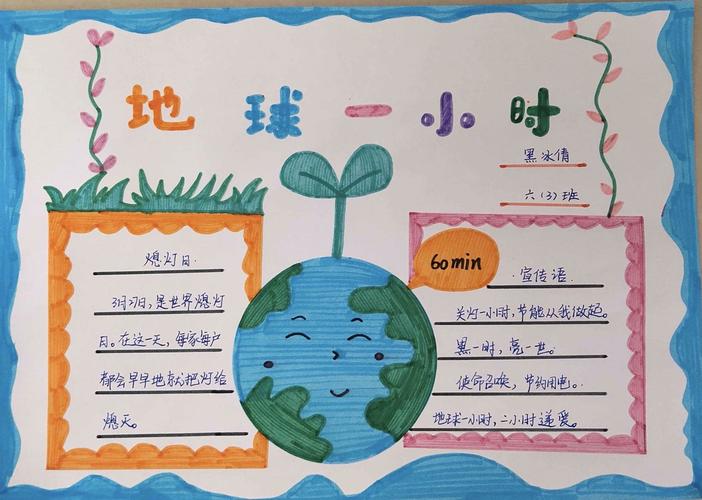 地球一小时
黑冰倩
六(3)班
熄灯日.
3月27日,是世界熄灯
日。在这一天,每家每户
都会早早地就把灯给
熄灭。
60min
·宣传语.
关灯一小时,节能从我做起。
黑一时,亮一世。
使命召唤,节约用电。
地球一小时,二小时递爱。